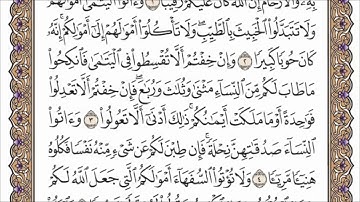 بِهِۦ وَٱلْأَرْحَامَ إِنَّ ٱللَّهَ كَانَ عَلَيْكُمْ رَقِيبًا ١ وَءَاتُوا۟ ٱلْيَتَٰمَىٰٓ أَمْوَٰلَهُمْ
وَلَا تَتَبَدَّلُوا۟ ٱلْخَبِيثَ بِٱلطَّيِّبِ وَلَا تَأْكُلُوٓا۟ أَمْوَٰلَهُمْ إِلَىٰٓ أَمْوَٰلِكُمْ إِنَّهُۥ
كَانَ حُوبًا كَبِيرًا ٢ وَإِنْ خِفْتُمْ أَلَّا تُقْسِطُوا۟ فِى ٱلْيَتَٰمَىٰ فَٱنكِحُوا۟
مَا طَابَ لَكُم مِّنَ ٱلنِّسَآءِ مَثْنَىٰ وَثُلَٰثَ وَرُبَٰعَ فَإِنْ خِفْتُمْ أَلَّا تَعْدِلُوا۟
فَوَٰحِدَةً أَوْ مَا مَلَكَتْ أَيْمَٰنُكُمْ ذَٰلِكَ أَدْنَىٰٓ أَلَّا تَعُولُوا۟ ٣ وَءَاتُوا۟
ٱلنِّسَآءَ صَدُقَٰتِهِنَّ نِحْلَةً فَإِن طِبْنَ لَكُمْ عَن شَىْءٍ مِّنْهُ نَفْسًا فَكُلُوهُ
هَنِيٓـًٔا مَّرِيٓـًٔا ٤ وَلَا تُؤْتُوا۟ ٱلسُّفَهَآءَ أَمْوَٰلَكُمُ ٱلَّتِى جَعَلَ ٱللَّهُ لَكُمْ